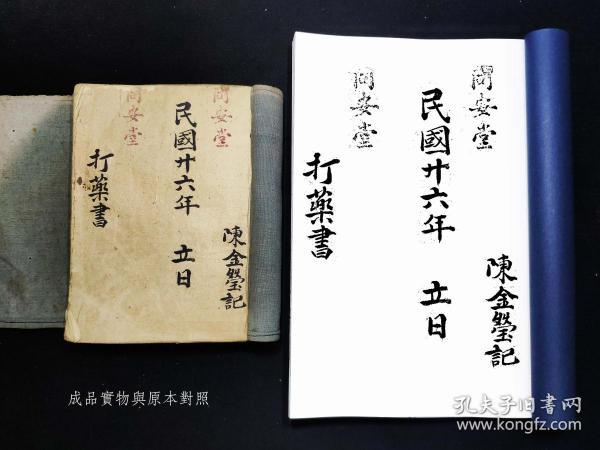 陳金瑩記
安堂
民國廿六年 立日
安堂
打藥書
陳金瑩記
安堂
民國廿六年 立日
安堂
打藥書
成品實物與原本對照
孔夫子旧书网
www.kongfz.com